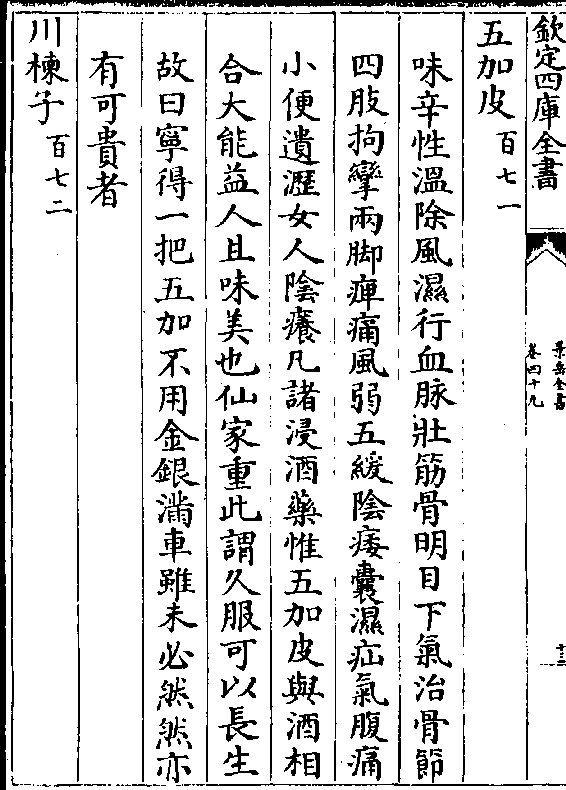 欽定四庫全書
景岳全書
卷四十九
十三
五加皮百七一
味辛性溫除風濕行血脉壯筋骨明目下氣治骨節
四肢拘攣兩脚痺痛風弱五緩陰痿囊濕疝氣腹痛
小便遺瀝女人陰癢凡諸浸酒藥惟五加皮與酒相
合大能益人且味美也仙家重此謂久服可以長生
故曰寧得一把五加不用金銀滿車雖未必然然亦
有可貴者
川楝子百七二